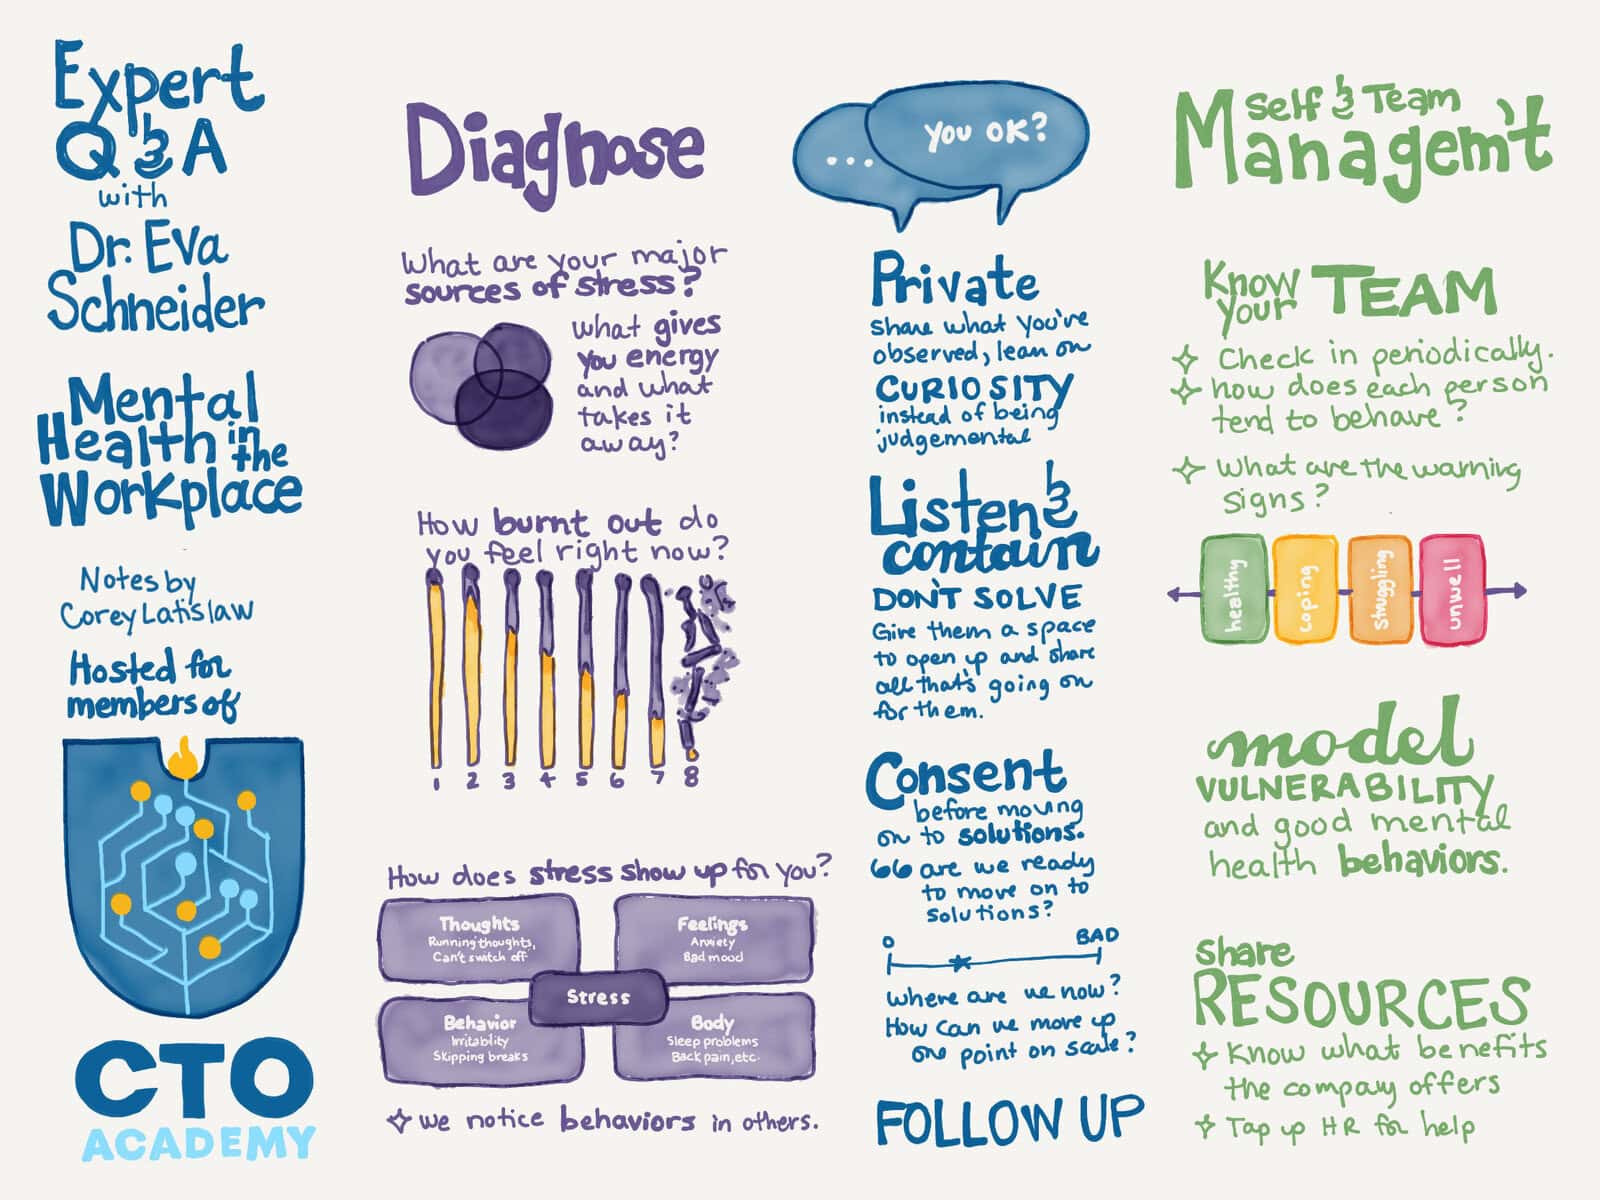 Expert
Q & A
with
Dr. Eva
Schneider
Mental
Health in the
Workplace
Notes by
Corey Latislaw
Hosted for
members of
CTO
ACADEMY
Diagnose
What are your major
sources of stress?
what gives
you energy
and what
takes it
away?
How burnt out do
you feel right now?
1 2 3 4 5 6 7 8
How does stress show up for you?
Thoughts
Running thoughts,
Can't switch off
Feelings
Anxiety
Bad mood
Stress
Behavior
Irritability
Skipping breaks
Body
Sleep problems
Back pain, etc.
we notice behaviors in others.
...
You OK?
Private
Share what you've
observed, lean on
CURIOSITY
instead of being
judgemental
Listen &
contain
DON'T SOLVE
Give them a space
to open up and share
all that's going on
for them.
Consent
before moving
on to solutions.
66 are we ready
to move on to
solutions?
0 BAD
Where are we now?
How can we move up
one point on scale?
FOLLOW UP
Self & Team
Managem't
Know
your TEAM
Check in periodically.
how does each person
tend to behave?
What are the warning
signs?
healthy
coping
struggling
unwell
model
VULNERABILITY
and good mental
health behaviors.
share
RESOURCES
Know what benefits
the company offers
Tap up HR for help